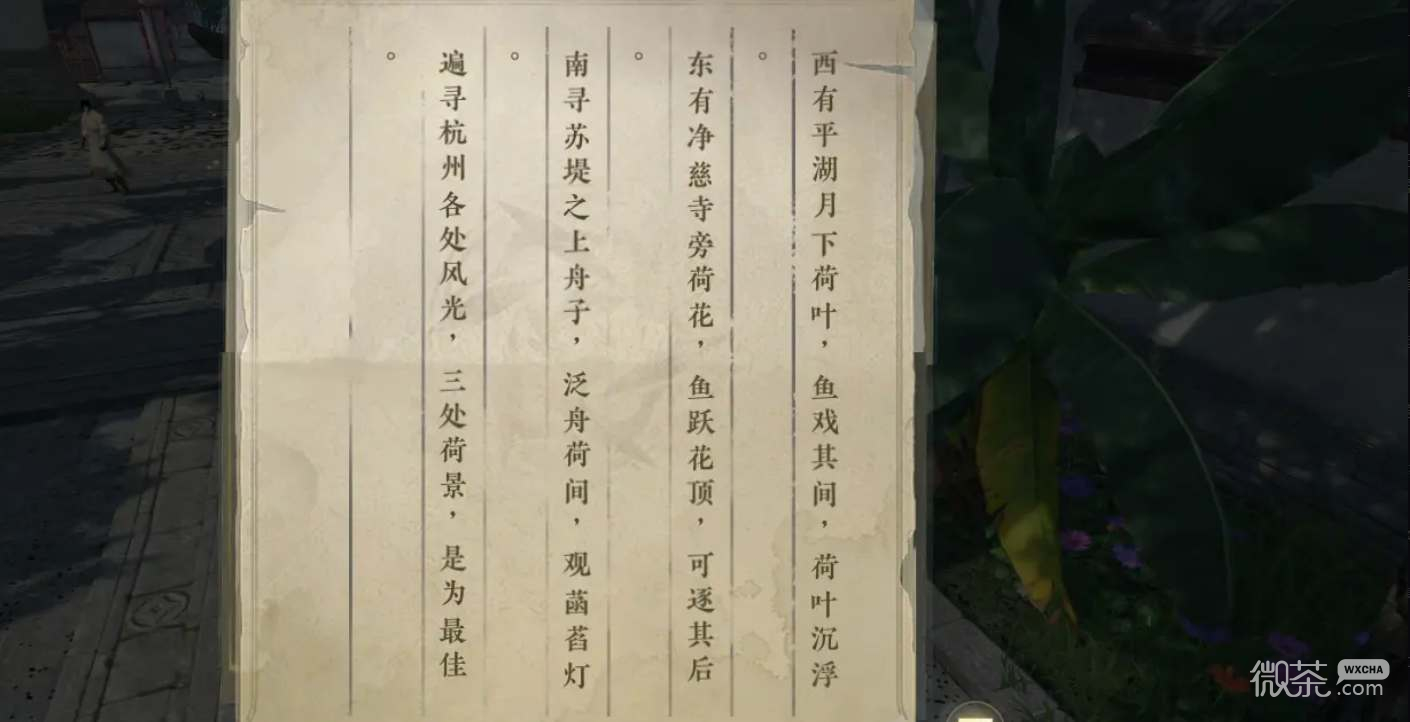 西有平湖月下荷叶，鱼戏其间，荷叶沉浮
。
东有净慈寺旁荷花，鱼跃花顶，可逐其后
。
南寻苏堤之上舟子，泛舟荷间，观菡萏灯
。
遍寻杭州各处风光，三处荷景，是为最佳
。
微茶 WXCHA
.com